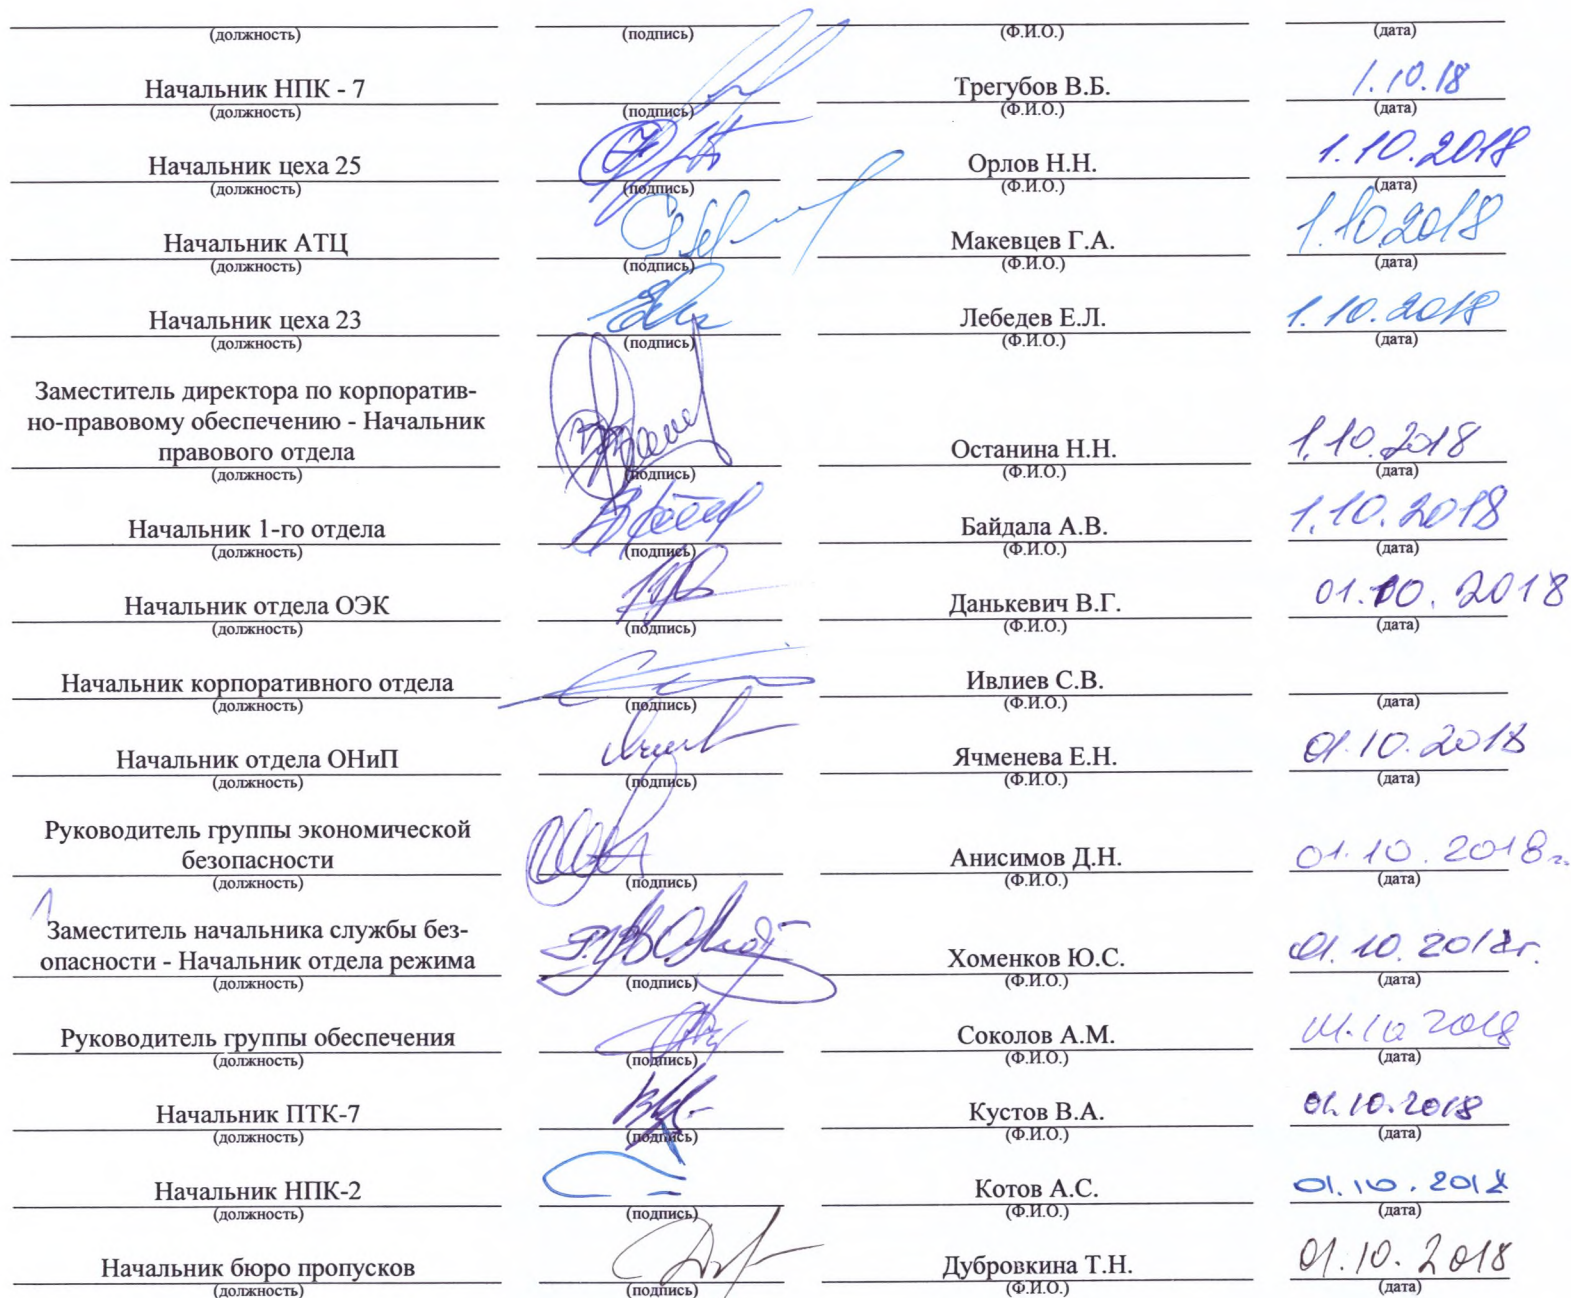 (должность) (подпись) (Ф.И.О.) (дата)
Начальник НПК - 7 Трегубов В.Б. 1.10.18
(должность) (подпись) (Ф.И.О.) (дата)
Начальник цеха 25 Орлов Н.Н. 1.10.2018
(должность) (подпись) (Ф.И.О.) (дата)
Начальник АТЦ Макевцев Г.А. 1.10.2018
(должность) (подпись) (Ф.И.О.) (дата)
Начальник цеха 23 Лебедев Е.Л. 1.10.2018
(должность) (подпись) (Ф.И.О.) (дата)
Заместитель директора по корпоратив-
но-правовому обеспечению - Начальник
правового отдела Останина Н.Н. 1.10.2018
(должность) (подпись) (Ф.И.О.) (дата)
Начальник 1-го отдела Байдала А.В. 1.10.2018
(должность) (подпись) (Ф.И.О.) (дата)
Начальник отдела ОЭК Данькевич В.Г. 01.10.2018
(должность) (подпись) (Ф.И.О.) (дата)
Начальник корпоративного отдела Ивлиев С.В.
(должность) (подпись) (Ф.И.О.) (дата)
Начальник отдела ОНиП Ячменева Е.Н. 01.10.2018
(должность) (подпись) (Ф.И.О.) (дата)
Руководитель группы экономической
безопасности Анисимов Д.Н. 01.10.2018г.
(должность) (подпись) (Ф.И.О.) (дата)
Заместитель начальника службы без-
опасности - Начальник отдела режима Хоменков Ю.С. 01.10.2018г.
(должность) (подпись) (Ф.И.О.) (дата)
Руководитель группы обеспечения Соколов А.М. 01.10 2018
(должность) (подпись) (Ф.И.О.) (дата)
Начальник ПТК-7 Кустов В.А. 01.10.2018
(должность) (подпись) (Ф.И.О.) (дата)
Начальник НПК-2 Котов А.С. 01.10.2018
(должность) (подпись) (Ф.И.О.) (дата)
Начальник бюро пропусков Дубровкина Т.Н. 01.10.2018
(должность) (подпись) (Ф.И.О.) (дата)